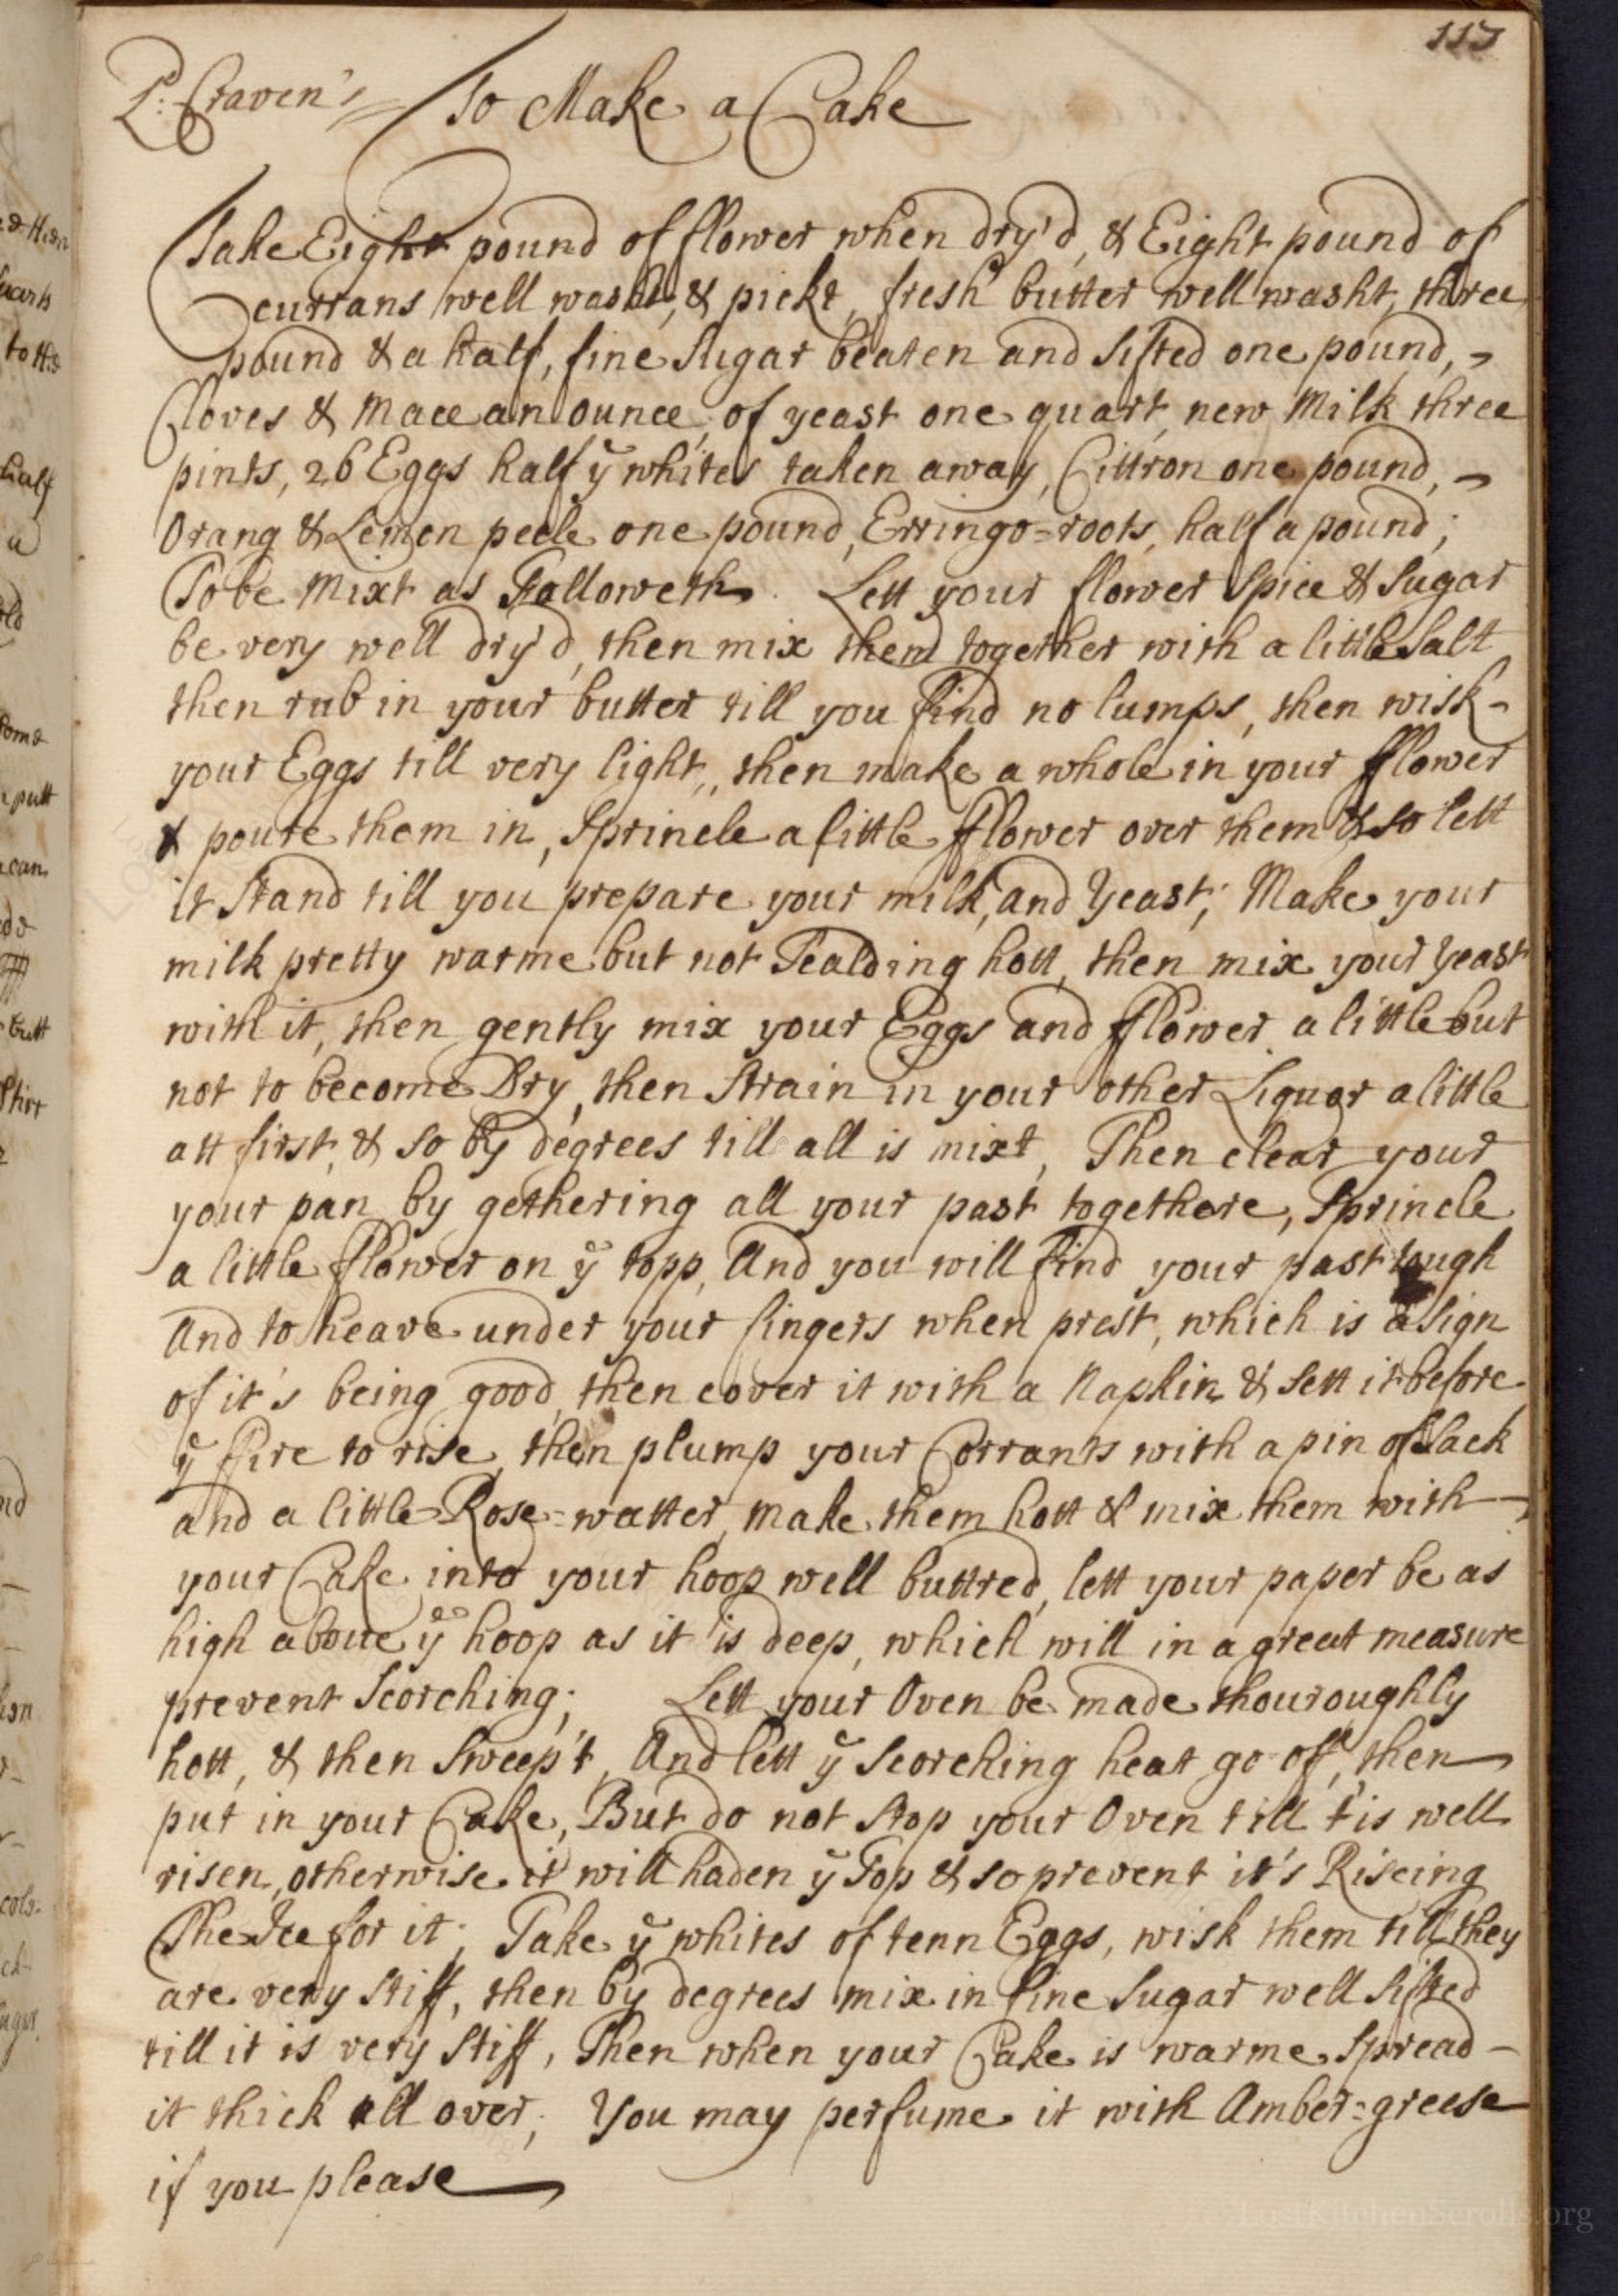 113
L: Craven's To Make a Cake
Take Eight pound of flower when dry'd, & Eight pound of
currans well washt, & pickt, fresh butter well washt, three
pound & a half, fine Sugar beaten and sifted one pound,
Cloves & Mace an ounce, of yeast one quart, new Milk three
pints, 26 Eggs half ÿ whites taken away, Cittron one pound,
Orang & Lemon peele one pound, Erringo=roots, half a pound;
To be Mixt as Followeth. Lett your flower Spice & Sugar
be very well dry'd, then mix them together with a little Salt
then rub in your butter till you find no lumps, then wisk
your Eggs till very light, then make a whole in your fflower
& poure them in, Sprincle a little fflower over them & so lett
it Stand till you prepare your milk, and Yeast; Make your
milk pretty warme but not Scalding hott, then mix your Yeast
with it, then gently mix your Eggs and fflower a little but
not to become Dry, then Strain in your other Liquor a little
att first, & so by degrees till all is mixt, Then clear your
your pan by gethering all your past togethere, Sprincle
a little flower on ÿ topp, And you will find your past tough
And to heave under your fingers when prest, which is a sign
of it's being good, then cover it with a Napkin & sett it before
ÿ ffire to rise, then plump your Corrants with a pin of Sack
and a little Rose=watter, make them hott & mix them with
your Cake into your hoop well buttred, lett your paper be as
high above ÿ hoop as it is deep, which will in a great measure
prevent Scorching; Lett your Oven be made thouroughly
hott, & then Sweep't, And lett ÿ Scorching heat go off, then
put in your Cake, But do not Stop your Oven till t'is well
risen, otherwise it will haden ÿ Top & so prevent it's Riseing
The Ice for it; Take ÿ whites of tenn Eggs, wisk them till they
are very Stiff, then by degrees mix in fine Sugar well Sifted
till it is very Stiff, Then when your Cake is warme Spread
it thick all over; You may perfume it with Amber=greese
if you please
LostKitchenScrolls.org